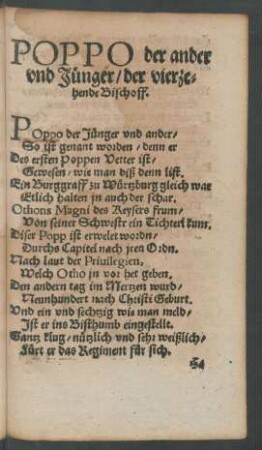 POPPO der ander
vnd Jünger/ der vierze-
hende Bischoff.
POppo der Jünger vnd ander/
So ist genant worden/ denn er
Des ersten Poppen Vetter ist/
Gewesen/ wie man diß denn list.
Ein Burggraff zu Würtzburg gleich war
Etlich halten jn auch der schar.
Othons Magni des Keysers frum/
Von seiner Schwestr ein Tichterl kum.
Diser Popp ist erwelet wordn/
Durchs Capitel nach jren Ordn.
Nach laut der Priuilegien,
Welch Otho jn vor het geben.
Den andern tag im Mertzen wurd/
Neunhundert nach Christi Geburt.
Vnd ein vnd sechtzig wie man meld/
Ist er ins Bisthumb eingestellt.
Gantz klug/ nützlich vnd sehr weißlich/
Fürt er das Regiment für sich.